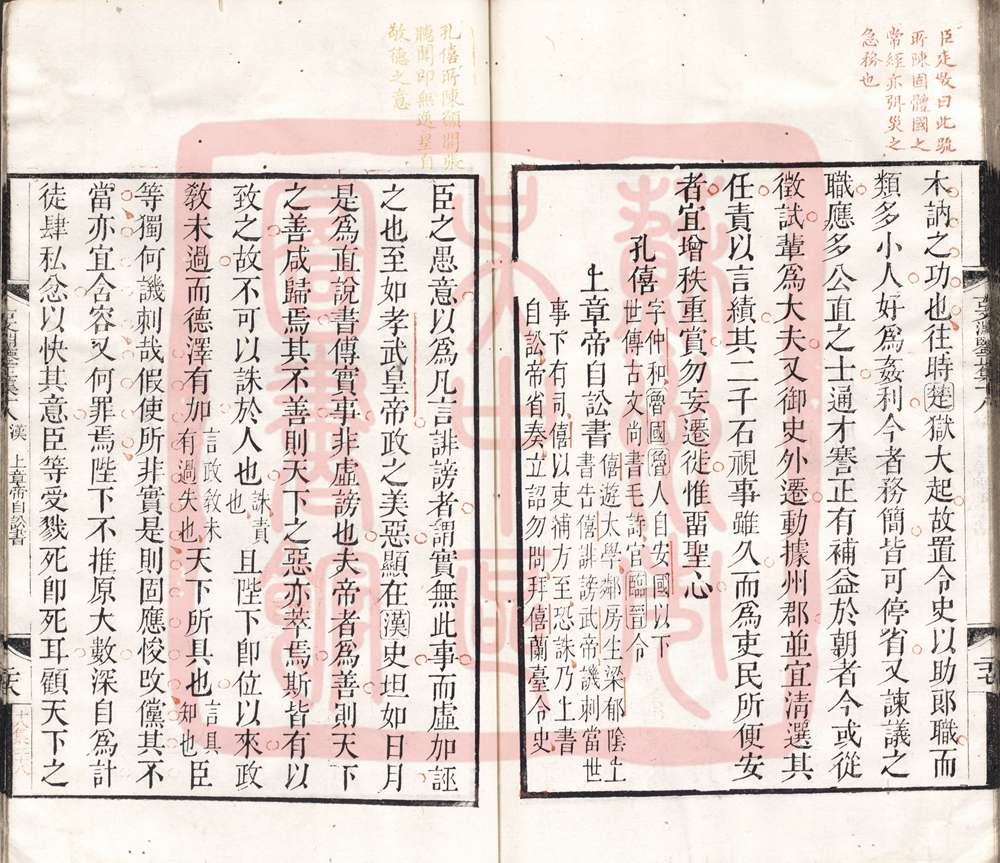 臣走敬曰此疏
所陳固體國之
常經亦弭災之
急務也
木訥之功也往時楚獄大起故置令史以助郎職而
類多小人好為姦利今者務簡皆可停省又諫議之
職應多公直之士通才謇正有補益於朝者今或從
徵試輩為大夫又御史外遷動據州郡並宜清選其
任責以言績其二千石視事雖久而為吏民所便安
者宜增秩重賞勿妄遷徙惟畱聖心
孔僖字仲和魯國魯人自安國以下
世傳古文尚書毛詩官臨晉令
上章帝自訟書僖遊太學鄰房生梁郁陰上
書告僖誹謗武帝譏刺當世
事下有司僖以吏捕方至恐誅乃上書
自訟帝省奏立詔勿問拜僖蘭臺令史
孔僖所陳頗開張
聽聞即無逸皇自
敬德之意
臣之愚意以為凡言誹謗者謂實無此事而虛加誣
之也至如孝武皇帝政之美惡顯在漢史坦如日月
是為直說書傳實事非虛謗也夫帝者為善則天下
之善咸歸焉其不善則天下之惡亦萃焉斯皆有以
致之故不可以誅於人也誅責
也且陛下即位以來政
教未過而德澤有加言政教未
有過失也天下所具也言具
知也臣
等獨何譏刺哉假使所非實是則固應悛改儻其不
當亦宜含容又何罪焉陛下不推原大數深自為計
徒肆私忿以快其意臣等受戮死即死耳顧天下之
漢
上章帝自訟書